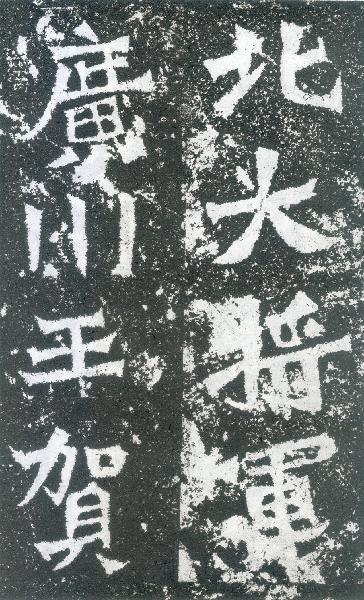 北大將軍
廣川王賀